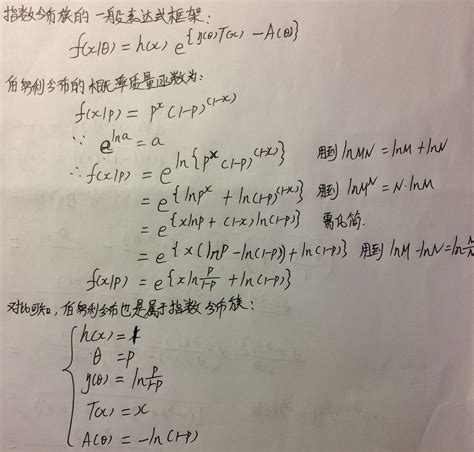 指数分布族的一般表达式框架:
f(x|θ) = h(x) e^{η(θ)T(x) - A(θ)}
伯努利分布的概率质量函数为:
f(x|p) = p^x (1-p)^(1-x)
∵ e^lna = a
∴ f(x|p) = e^ln{p^x (1-p)^(1-x)} 用到 lnMN = lnM + lnN
= e^{lnp^x + ln(1-p)^(1-x)} 用到 lnM^N = N·lnM
= e^{xlnp + (1-x)ln(1-p)} 需化简.
= e^{x(lnp - ln(1-p)) + ln(1-p)} 用到 lnM - lnN = ln M/N
f(x|p) = e^{x ln p/1-p + ln(1-p)}
对比可知, 伯努利分布也是属于指数分布族:
h(x) = 1
θ = p
η(θ) = ln p/1-p
T(x) = x
A(θ) = -ln(1-p)